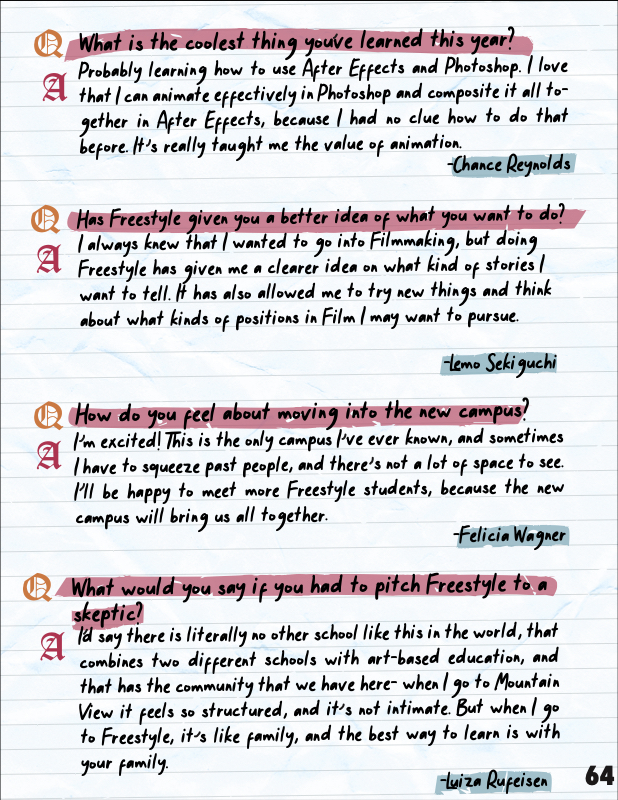 Q What is the coolest thing you've learned this year?
A Probably learning how to use After Effects and Photoshop. I love
that I can animate effectively in Photoshop and composite it all to-
gether in After Effects, because I had no clue how to do that
before. It's really taught me the value of animation.
-Chance Reynolds
Q Has Freestyle given you a better idea of what you want to do?
A I always knew that I wanted to go into Filmmaking, but doing
Freestyle has given me a clearer idea on what kind of stories I
want to tell. It has also allowed me to try new things and think
about what kinds of positions in Film I may want to pursue.
-Lemo Sekiguchi
Q How do you feel about moving into the new campus?
A I'm excited! This is the only campus I've ever known, and sometimes
I have to squeeze past people, and there's not a lot of space to see.
I'll be happy to meet more Freestyle students, because the new
campus will bring us all together.
-Felicia Wagner
Q What would you say if you had to pitch Freestyle to a
skeptic?
A I'd say there is literally no other school like this in the world, that
combines two different schools with art-based education, and
that has the community that we have here- when I go to Mountain
View it feels so structured, and it's not intimate. But when I go
to Freestyle, it's like family, and the best way to learn is with
your family.
-Luiza Rufeisen
64